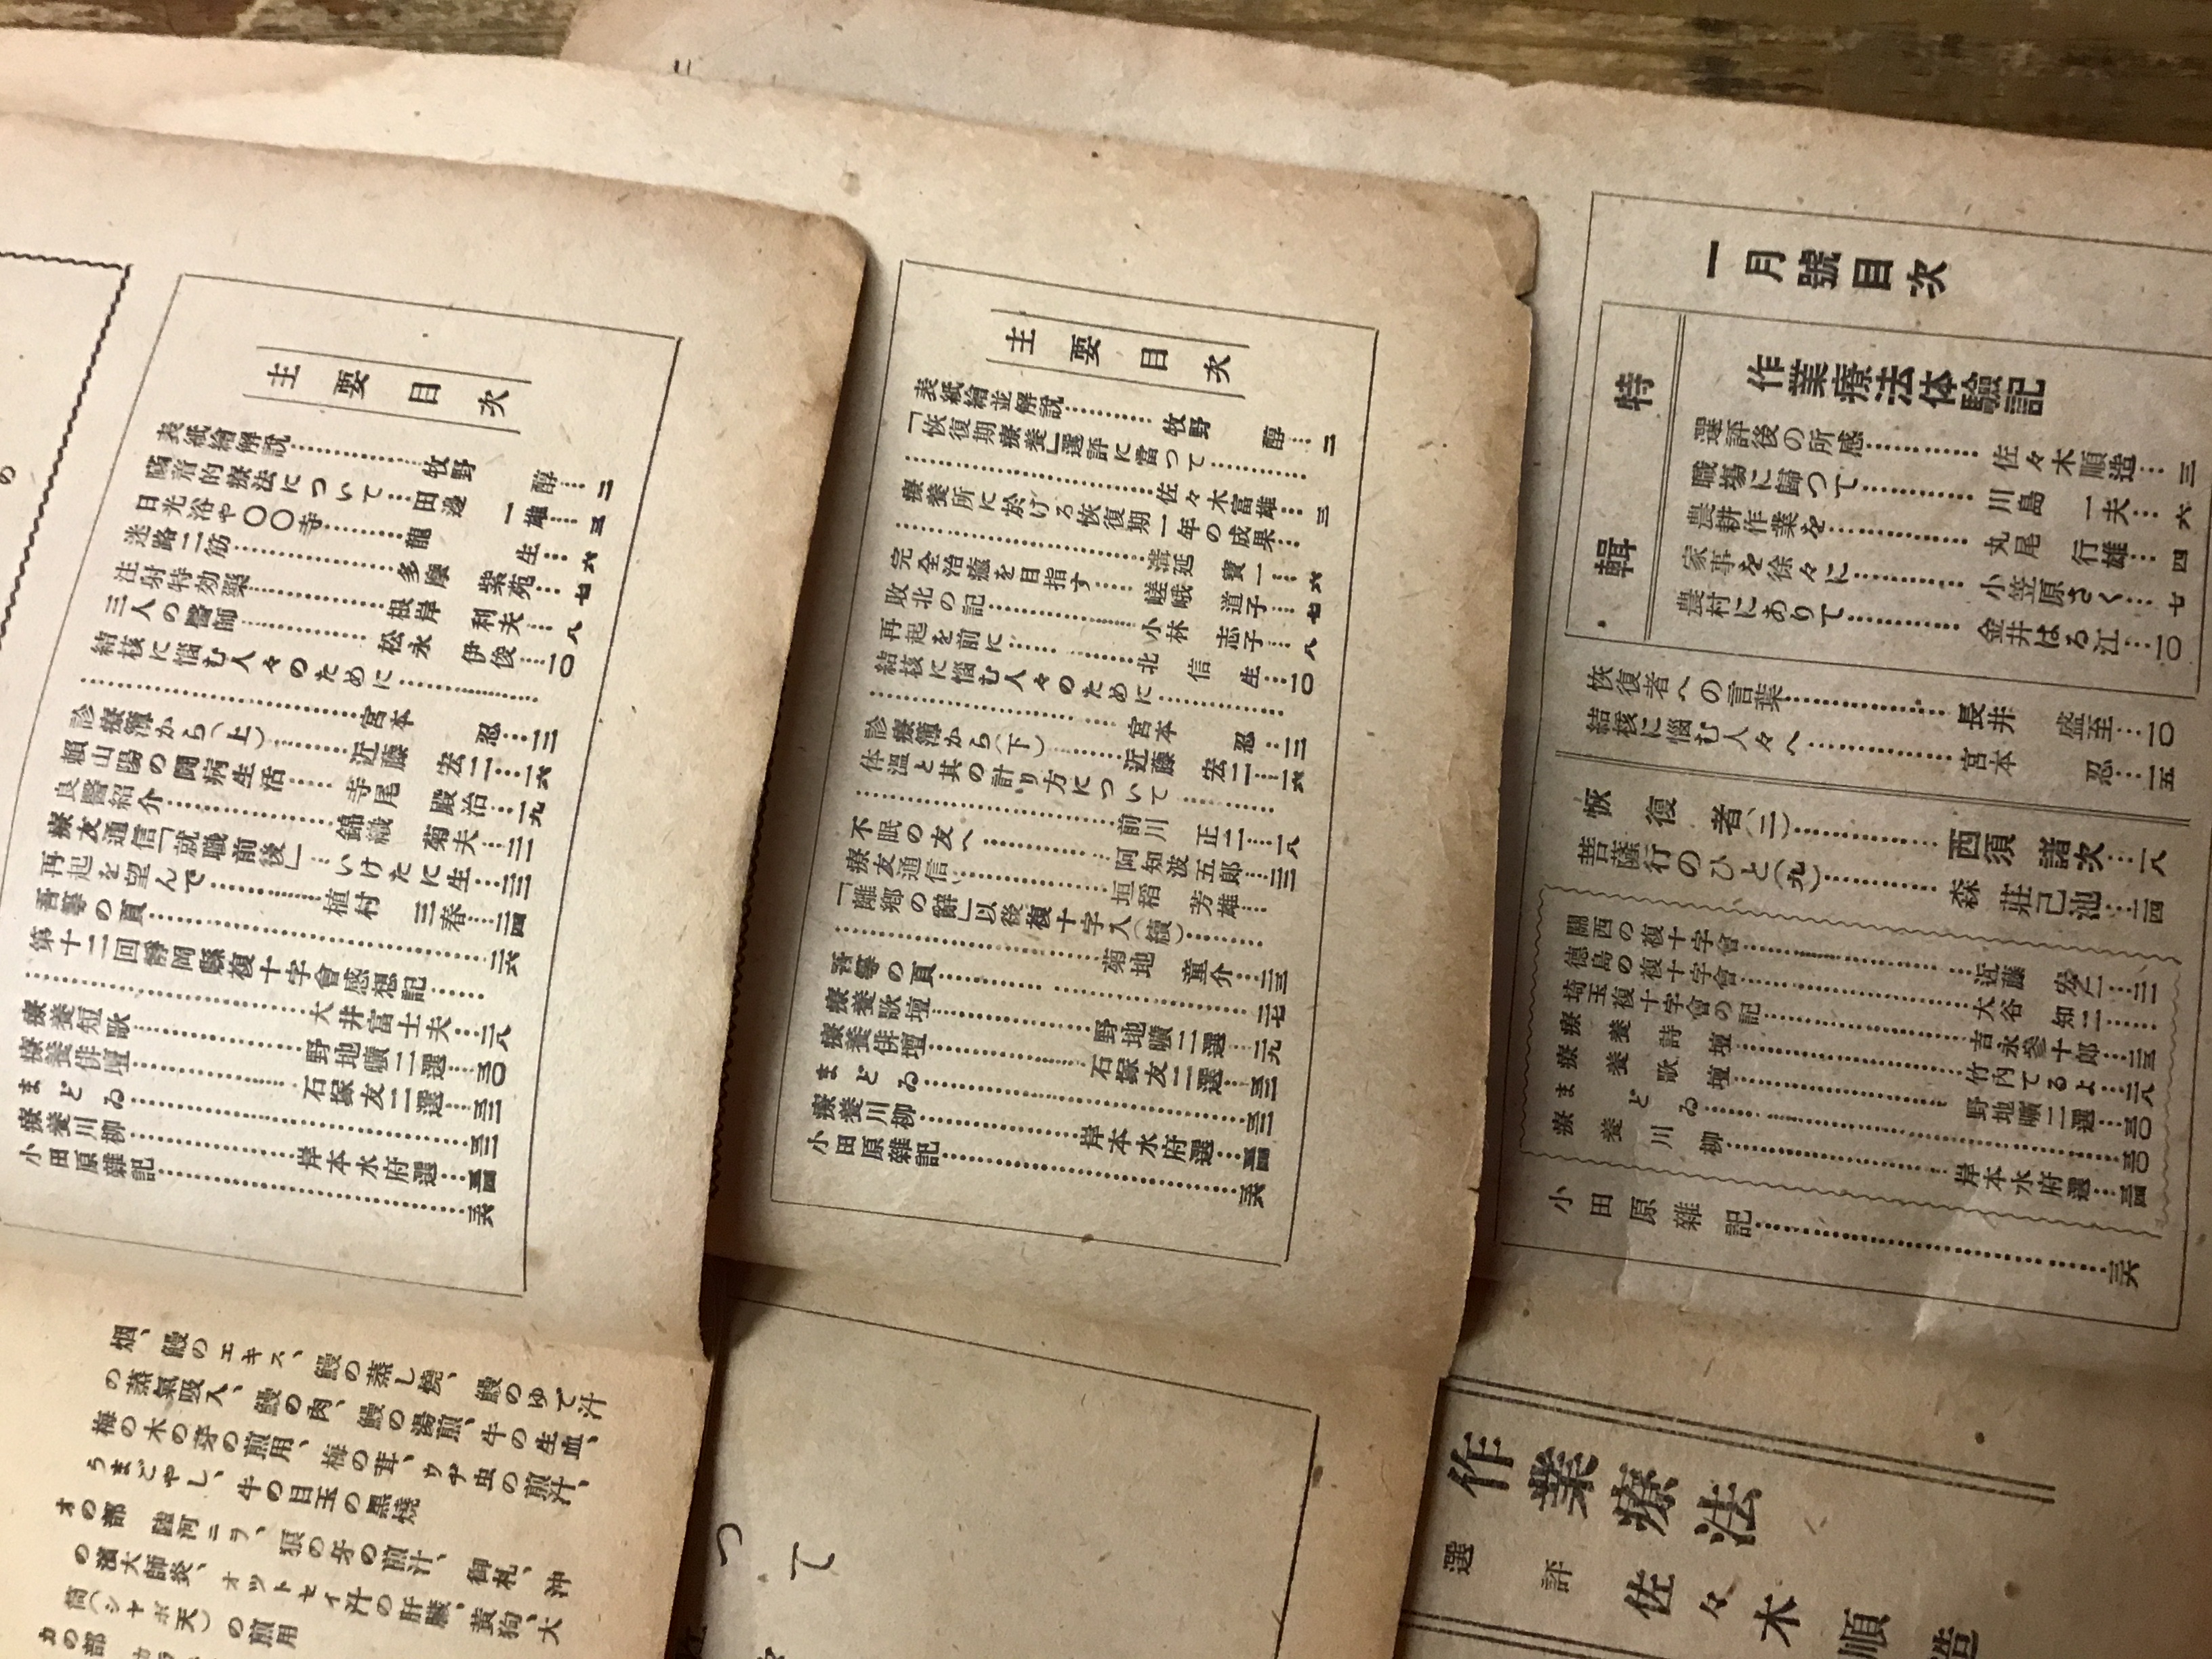 一月號目次
特輯
作業療法体驗記
選評後の所感……佐々木順造…三
職場に歸つて……川島一夫…六
農耕作業を……丸尾行雄…四
家事を徐々に……小笠原さく…七
農村にありて……金井はる江…一〇
恢復者への言葉……長井盛至…一〇
結核に惱む人々へ……宮本忍…一五
恢復者(二)……西須諸次…一八
菩薩行のひと(九)……森莊已池…二四
關西の複十字會……近藤宏二…二一
德島の複十字會……大谷知二…
埼玉複十字會の記……吉永參十郎…二三
療養詩壇……竹内てるよ…二八
療養歌壇……野地曠二選…三〇
まどゐ……三〇
療養川柳……岸本水府選…三四
小田原雜記……三六
作業療法
選評 佐々木順造
主要目次
表紙繪並解說……牧野醇…二
「恢復期療養」選評に當つて……
……佐々木富雄…三
療養所に於ける恢復期一年の成果
……溝延寶一…六
完全治癒を目指す 嵯峨道子…七
敗北の記……小林志子…八
再起を前に……北信生…一〇
結核に惱む人々のために……
……宮本忍…一三
診療簿から(下)……近藤宏二…一六
体溫と其の計り方について……
……前川正二…一八
不眠の友へ……阿知波五郎…二三
療友通信……垣稻芳雄…
「離鄕の辭」以後複十字入(續)……
……菊地童介…二三
吾等の頁……二七
療養歌壇……野地曠二選…二九
療養俳壇……石塚友二選…三二
まどゐ……三二
療養川柳……岸本水府選…三四
小田原雜記……三六
つて
主要目次
表紙繪解說……牧野醇…二
腦音的療法について…田邊一雄…三
日光浴や〇〇寺……龍生…六
迷路二筋……多摩紫苑…七
注射特効藥……根岸利夫…八
三人の醫師……松永伊俊…一〇
結核に惱む人々のために……
……宮本忍…一三
診療簿から(上)……近藤宏二…一六
賴山陽の鬪病生活…寺尾殿治…一九
良醫紹介……錦織菊夫…二一
療友通信「就職前後」…いけたに生…二三
再起を望んで……植村三春…二四
吾等の頁……二六
第十二回靜岡縣複十字會感想記……
……大井富士夫…二八
療養短歌……野地曠二選…三〇
療養俳壇……石塚友二選…三二
まどゐ……三二
療養川柳……岸本水府選…三四
小田原雜記……三六
烟、鰻のエキス、鰻の蒸し燒、鰻のゆで汁
の蒸氣吸入、鰻の肉、鰻の湯煎、牛の生血、
梅の木の芽の煎用、梅の茸、ウヂ虫の煎汁、
うまごやし、牛の目玉の黒燒
オの部 陸河ニラ、狼の牙の煎汁、御札、沖
の濱大師炎、オツトセイ汁の肝臟、黃狗、大
筒(シヤボ天)の煎用
カの部